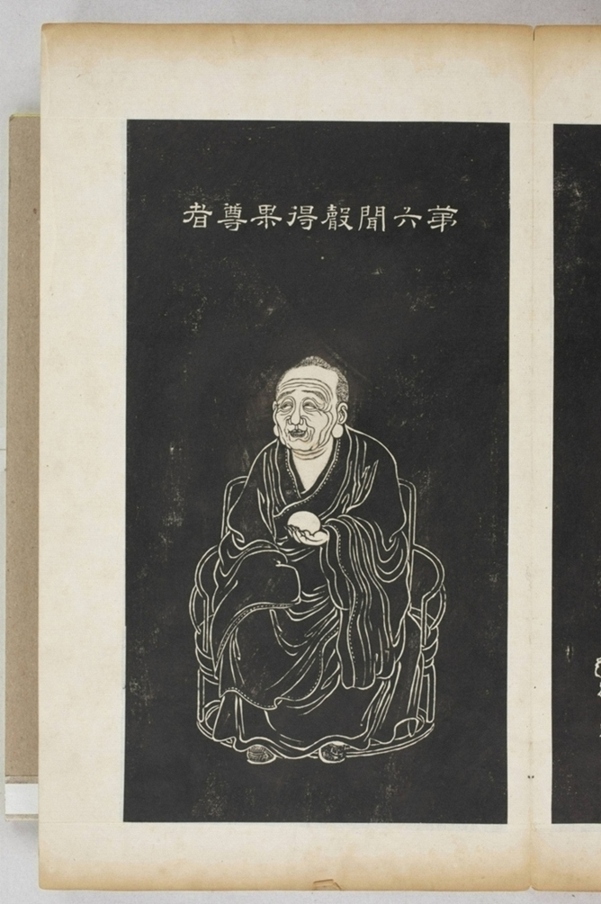 苐六聞聲得果尊者